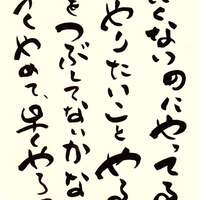 くないのにやってる
やりたいことやる
をつぶしてないかな
くやめて、早くやろ